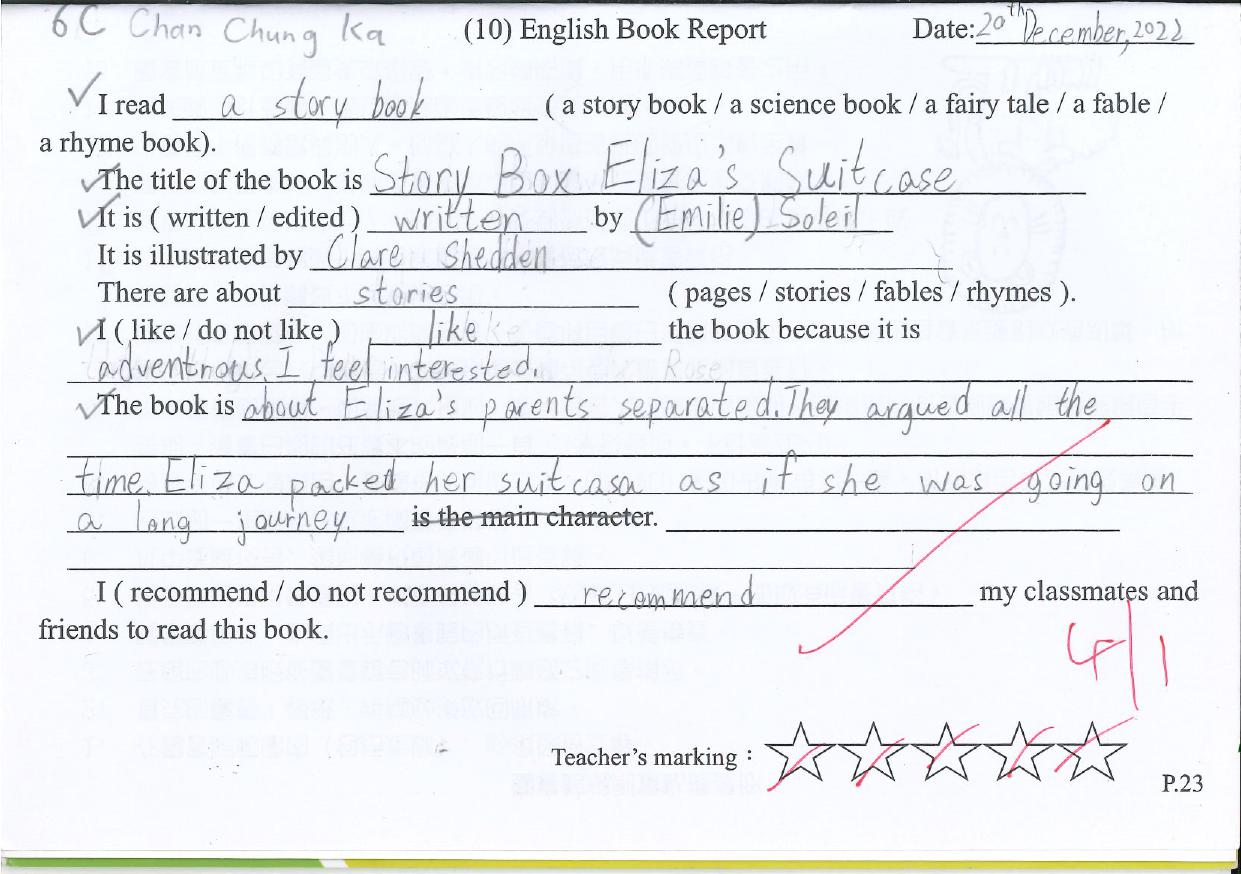 6C Chan Chung Ka (10) English Book Report Date: 20th December, 2022
I read a story book ( a story book / a science book / a fairy tale / a fable /
a rhyme book).
The title of the book is Story Box Eliza's Suitcase
It is ( written / edited ) written by (Emilie) Soleil
It is illustrated by Clare Shedden
There are about stories ( pages / stories / fables / rhymes ).
I ( like / do not like ) like the book because it is
adventrous. I feel interested.
The book is about Eliza's parents separated. They argued all the
time. Eliza packed her suitcasa as if she was going on
a long journey. is the main character.
I ( recommend / do not recommend ) recommend my classmates and
friends to read this book.
4/1
Teacher's marking :
P.23